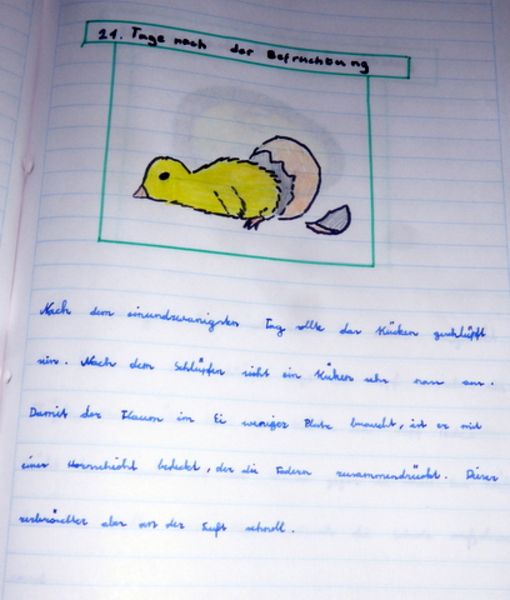 21. Tage nach der Befruchtung
Nach dem einundzwanigsten Tag sollte das Kücken geschlüpft
sein. Nach dem Schlüpfen sieht ein Küken sehr nass aus.
Damit der Flaum im Ei weniger Platz braucht, ist er mit
einer Hornschicht bedeckt, der die Federn zusammendrückt. Dieser
zerbröckelt aber an der Luft schnell.